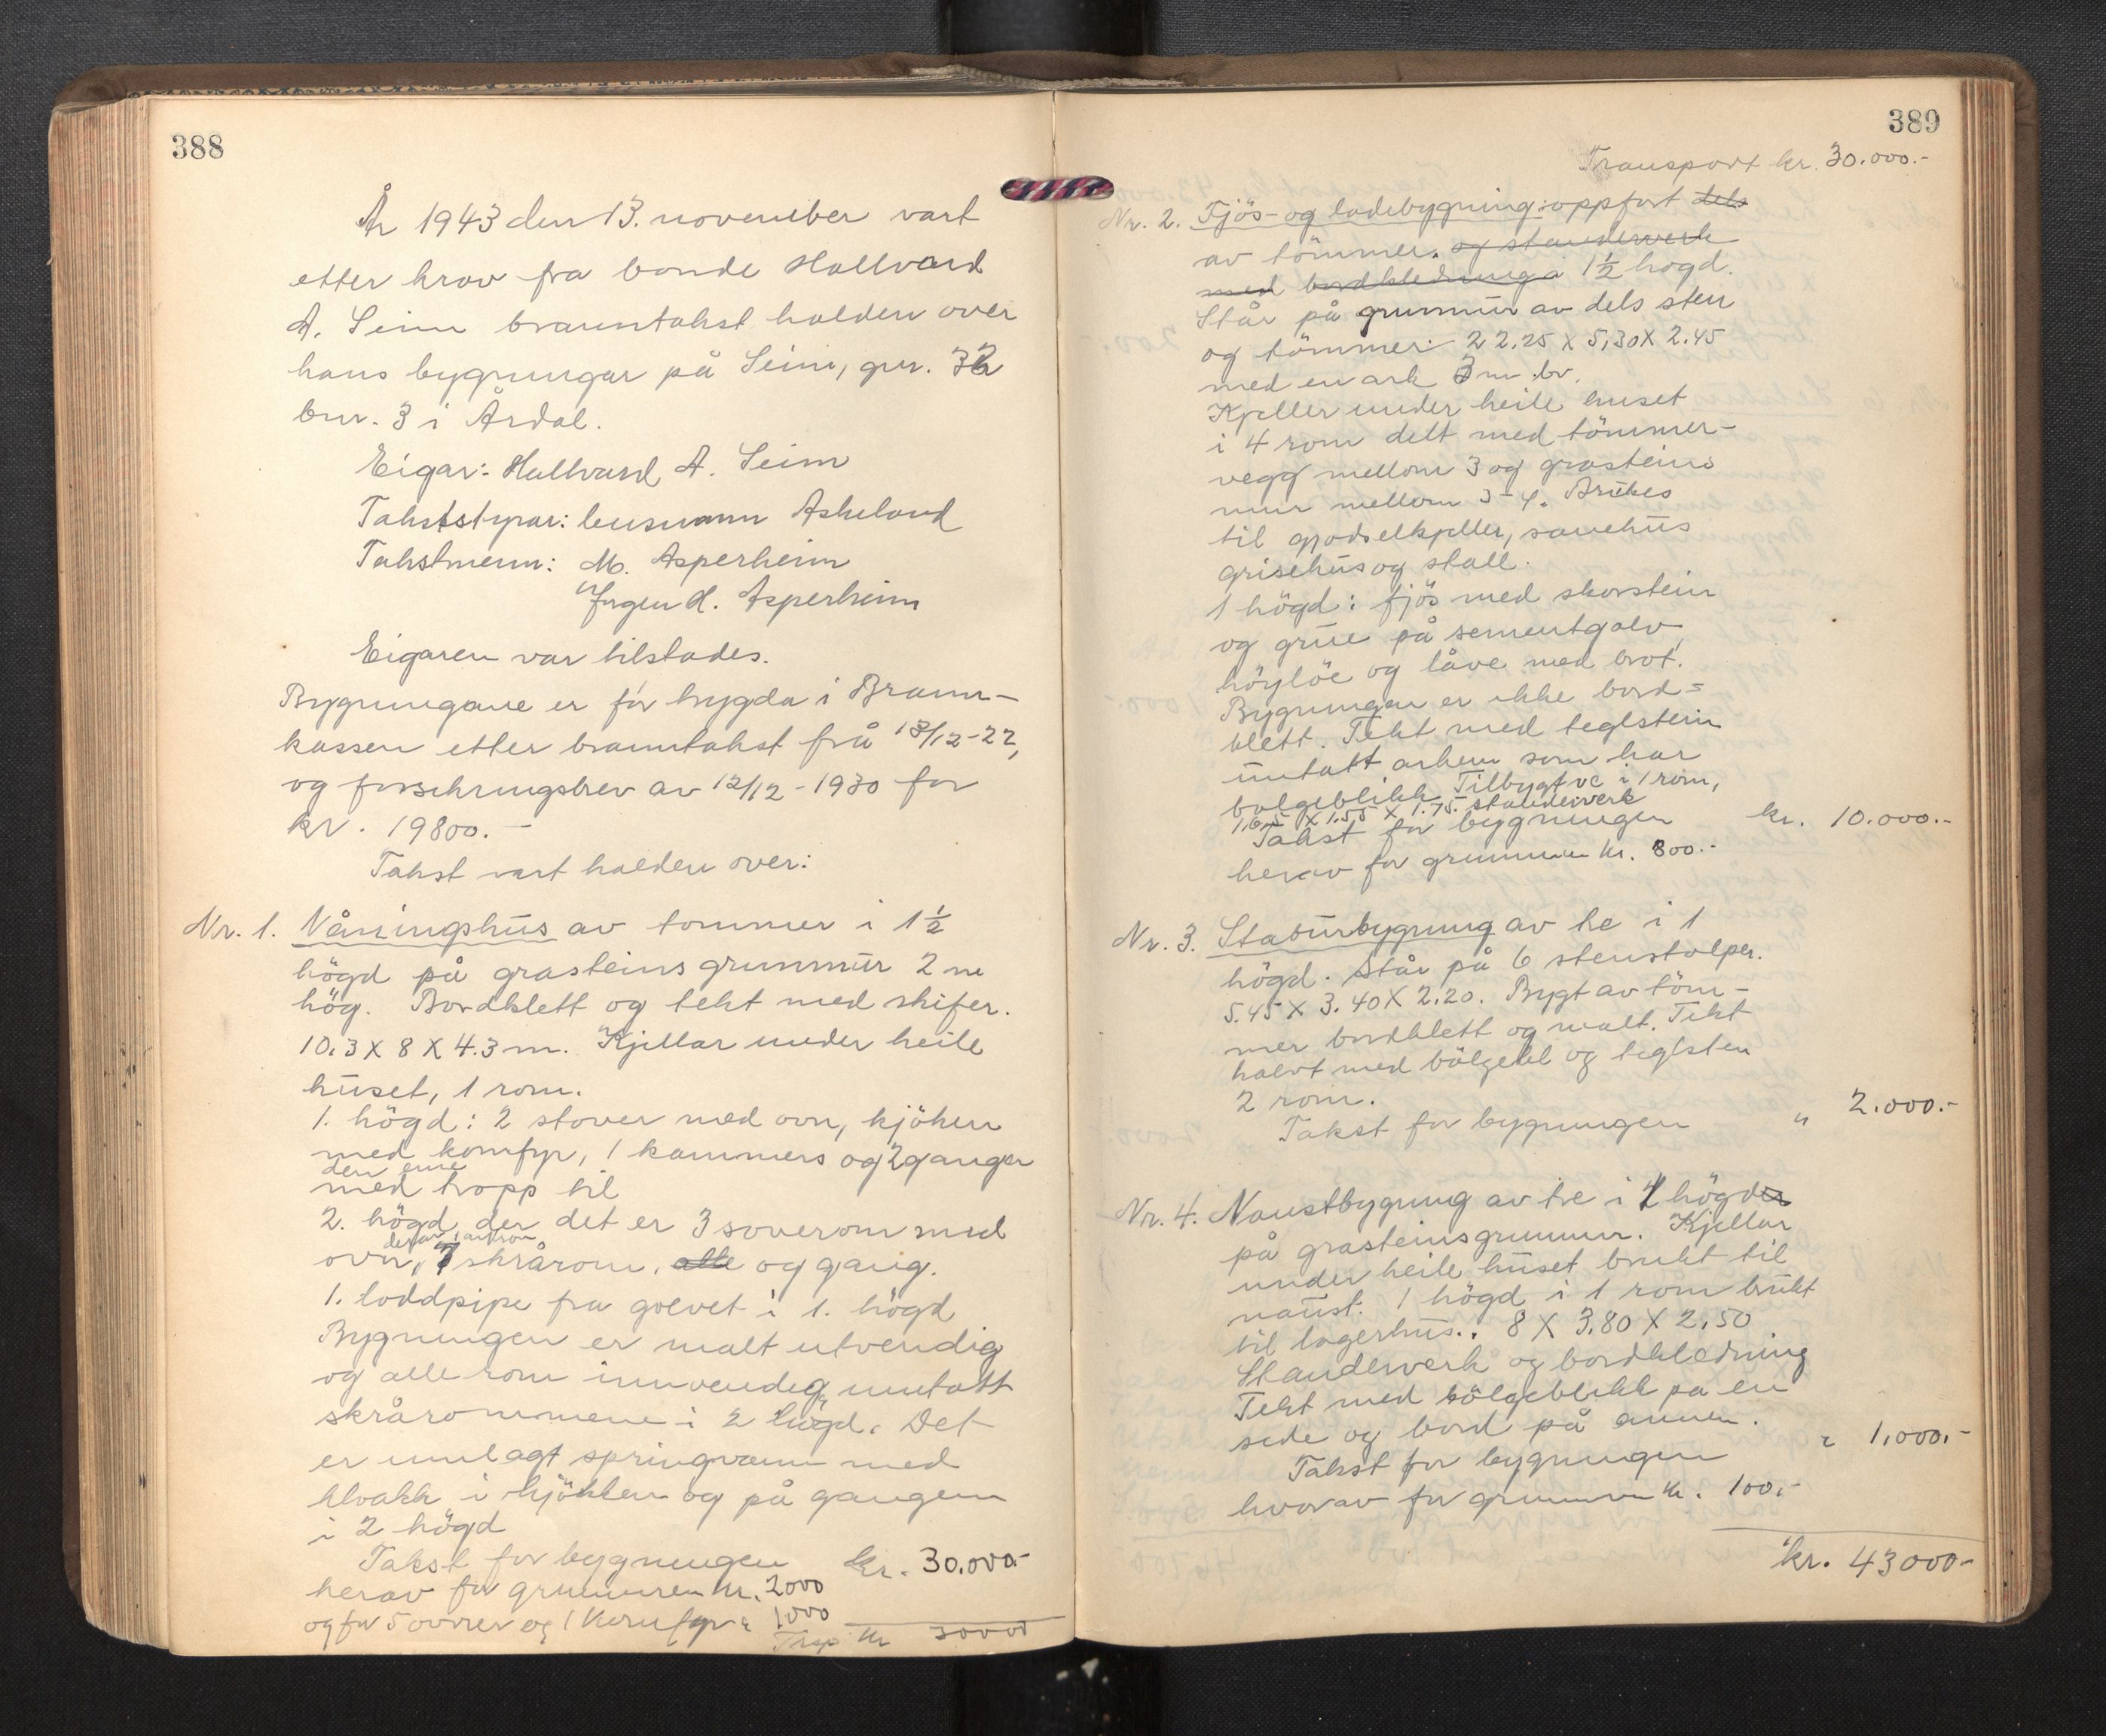 388
År 1943 den 13. november vart
etter krav fra bonde Hallvard
A. Seim branntakst halden over
hans bygningar på Seim, gnr. 32
bnr. 3 i Årdal.
Eigar: Hallvard A. Seim
Takststyrar: lensmann Askeland
Takstmenn: M. Asperheim
Jørgen H. Asperheim
Eigaren var tilstades.
Bygningane er før trygda i Brann-
kassen etter branntakst frå 18/12-22,
og forsikringsbrev av 12/12-1930 for
kr. 19800.-
Takst vart halden over:
Nr. 1. Våningshus av tømmer i 1½
högd på grasteins grunnmur 2 m
høg. Bordklett og tekt med skifer.
10,3 X 8 X 4.3 m. Kjellar under heile
huset, 1 rom.
1. högd: 2 stover med ovn, kjöken
med komfyr, 1 kammers og 2 ganger
den eine
med tropp til
2. högd, der det er 3 soverom med
ovn, 1 skrårom, alle og gang.
1. loddpipe fra golvet i 1. högd
Bygningen er malt utvendig
og alle rom innvendig unntatt
skrårommene i 2 högd. Det
er innlagt springvann med
klvakk i kjökken og på gangen
i 2 högd
Takst for bygningen kr. 30.000.-
herav for grunnmuren kr. 2000
og for 5 ovner og 1 komfyr " 1000
Trsp kr 30000
389
Transport kr. 30.000.-
Nr. 2. Fjös- og ladebygning: oppført dels
av tömmer. og standerverk
med bordkledning i 1½ högd.
Står på grunnmur av dels sten
og tömmer. 22.25 X 5,30 X 2.45
med en ark 3 m br.
Kjeller under heile huset
i 4 rom delt med tömmer-
vegg mellom 3 og grasteins
mur mellom 3-4. Brukes
til gjødselkjeller, sauehus
grisehus og stall.
1 högd: fjös med skorstein
og grue på sementgolv,
höylöe og låve med brot.
Bygningen er ikke bord-
klett. Tekt med teglstein
unntatt arken som har
bølgeblikk. Tilbygt vc i 1 rom,
1,65 X 1.55 X 1.75. standerverk
Takst for bygningen kr. 10.000.-
herav for grunnmuren kr. 800.-
Nr. 3. Stabursbygning av tre i 1
högd. Står på 6 stenstolper.
5.45 X 3.40 X 2.20. Bygt av töm-
mer bordklett og malt. Tekt
halvt med bölgebl og teglsten
2 rom.
Takst for bygningen " 2.000.-
Nr. 4. Naustbygning av tre i 1 högder
på grasteinsgrunnmur. Kjellar
under heile huset brukt til
naust. 1 högd i 1 rom brukt
til lagerhus. 8 X 3,80 X 2,50
Standerverk og bordkledning
Tekt med bölgeblikk på en
side og bord på annen.
Takst for bygningen " 1.000.-
hvorav for grunnmur kr. 100.-
kr. 43000-